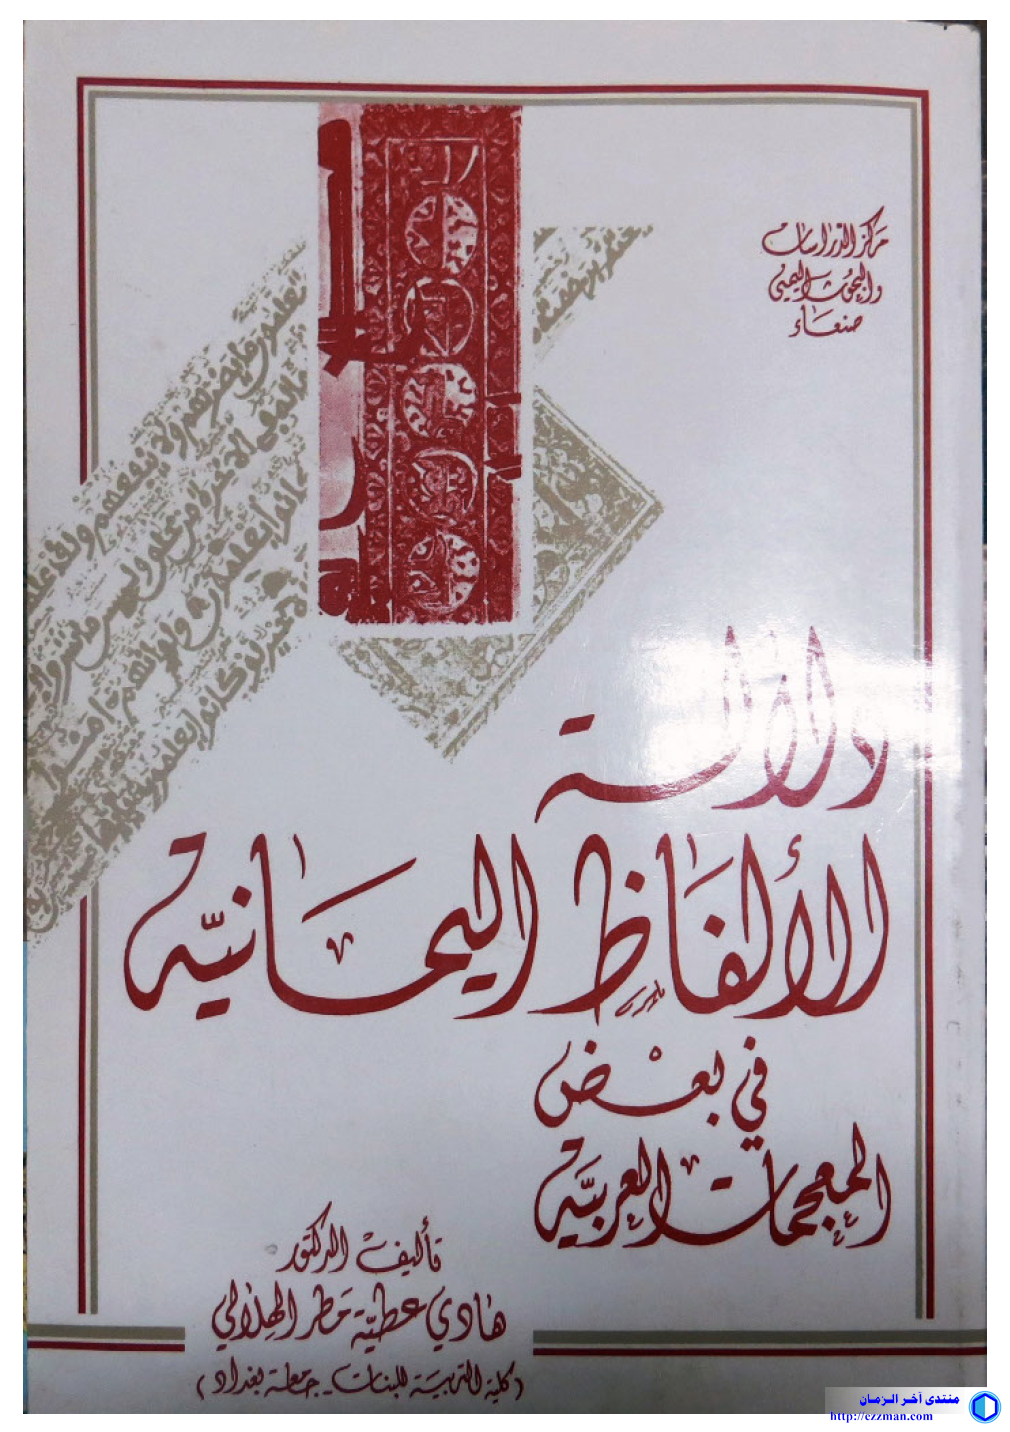 مركز الدراسات
والبحوث اليمني
صنعاء
دلالة
الألفاظ اليمانية
في بعض
المعجمات العربية
تأليف الدكتور
هادي عطية مطر الهلالي
(كلية التربية للبنات - جامعة بغداد)
منتدى آخر الزمان
http://ezzman.com